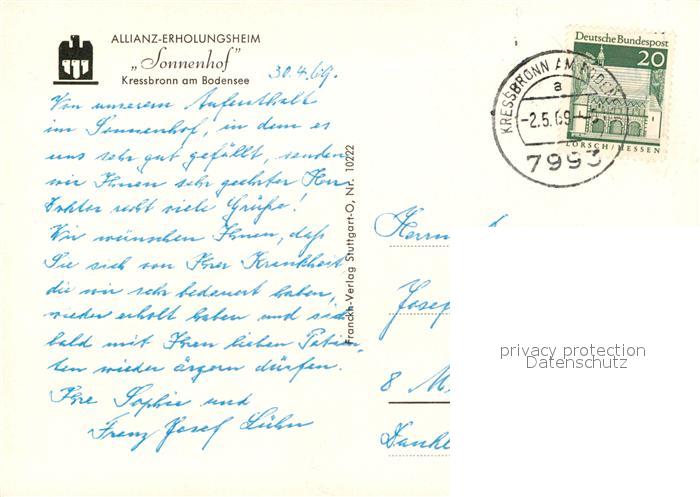 ALLIANZ-ERHOLUNGSHEIM
„Sonnenhof"
Kressbronn am Bodensee
30.4.69.
Von unserem Aufenthalt
im Sonnenhof, in dem es
uns sehr gut gefällt, senden
wir Ihnen sehr geehrter Herr
Doktor recht viele Grüße!
Wir wünschen Ihnen, daß
Sie sich von Ihrer Krankheit
die wir sehr bedauert haben,
wieder erholt haben und sich
bald mit Ihren lieben Patien-
ten wieder ärgern dürfen.
Ihre Sophie und
Franz Josef
Franckh-Verlag Stuttgart-O, Nr. 10222
KRESSBRONN AM BODEN
a
-2.5.69-
7993
Deutsche Bundespost
20
LORSCH/HESSEN
Herrn
Josef
8 M
privacy protection
Datenschutz